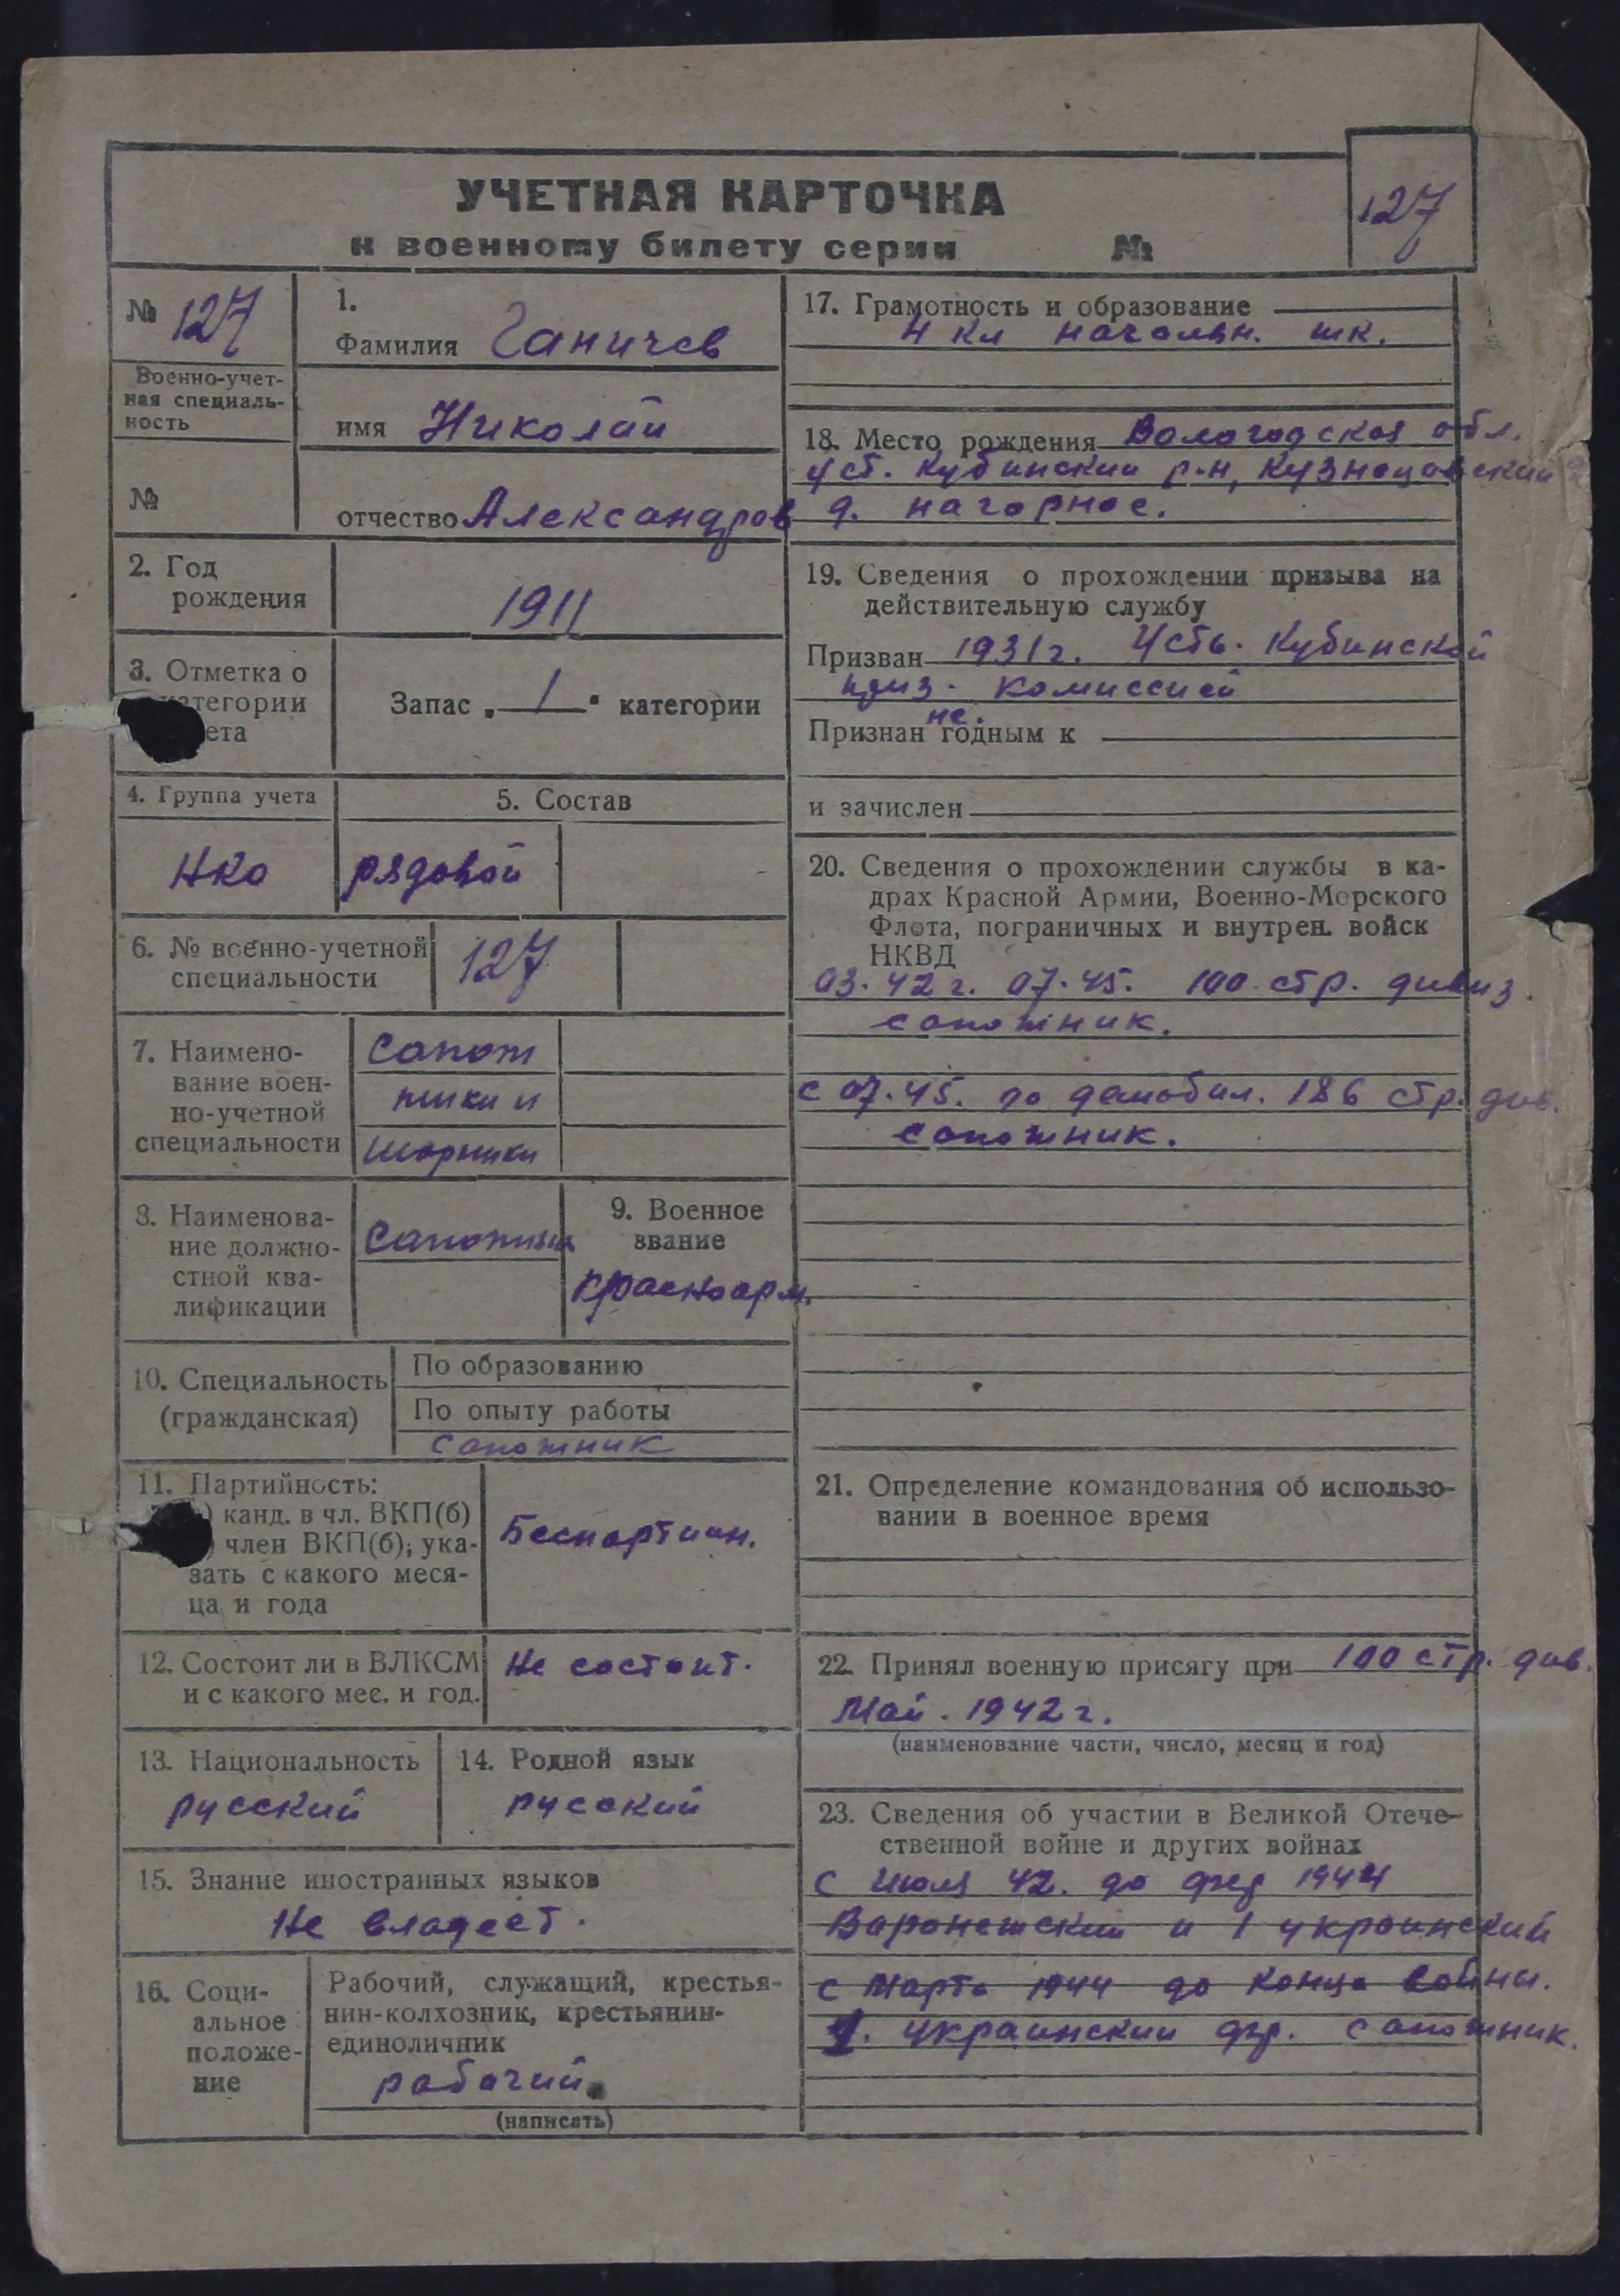 УЧЕТНАЯ КАРТОЧКА
к военному билету серии №
127
№ 127
Военно-учет-
ная специаль-
ность
№
1.
Фамилия Ганичев
имя Николай
отчество Александров
2. Год
рождения
1911
3. Отметка о
категории
ета
Запас „ 1 " категории
4. Группа учета
НКО
5. Состав
рядовой
6. № военно-учетной
специальности
127
7. Наимено-
вание воен-
но-учетной
специальности
Сапож
ники и
шорники
8. Наименова-
ние должно-
стной ква-
лификации
Сапожник
9. Военное
звание
красноарм.
10. Специальность
(гражданская)
По образованию
По опыту работы
сапожник
11. Партийность:
) канд. в чл. ВКП(б)
) член ВКП(б); ука-
зать с какого меся-
ца и года
Беспартийн.
12. Состоит ли в ВЛКСМ
и с какого мес. и год.
Не состоит.
13. Национальность
русский
14. Родной язык
русский
15. Знание иностранных языков
Не владеет.
16. Соци-
альное
положе-
ние
Рабочий, служащий, крестья-
нин-колхозник, крестьянин-
единоличник
рабочий
(написать)
17. Грамотность и образование
4 кл начальн. шк.
18. Место рождения Вологодская обл.
Уст. Кубинский р-н, Кузнецовский
д. Нагорное.
19. Сведения о прохождении призыва на
действительную службу
Призван 1931 г. Усть. Кубинской
приз. комиссией
Признан не годным к
и зачислен
20. Сведения о прохождении службы в ка-
драх Красной Армии, Военно-Морского
Флота, пограничных и внутрен. войск
НКВД
03.42 г. 07.45. 100 стр. дивиз.
сапожник.
с 07.45. до демобил. 186 стр. див.
сапожник.
21. Определение командования об использо-
вании в военное время
22. Принял военную присягу при 100 стр. див.
Май. 1942 г.
(наименование части, число, месяц и год)
23. Сведения об участии в Великой Отече-
ственной войне и других войнах
с июля 42. до 1944
Воронежский и 1 украинский
с марта 1944 до конца войны.
1. украинский фр. сапожник.